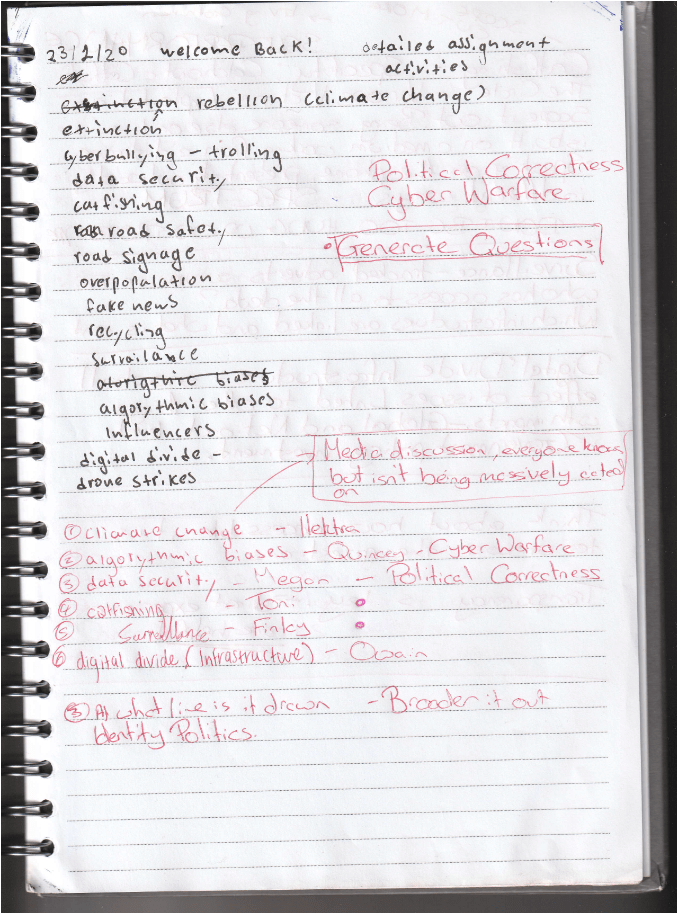 23/2/20 welcome Back! detailed assignment
activities
rebellion (climate change)
extinction ^
cyberbullying - trolling
data security
Political Correctness
catfishing
Cyber Warfare
road safety
road signage
• Generate Questions
overpopulation
fake news
recycling
survailance
algorythmic biases
Influencers
digital divide -
drone strikes
Media discussion, everyone knows
but isn't being massively acted
on
① climate change - Elektra
② algorythmic biases - Quincey - Cyber Warfare
③ data security - Megan - Political Correctness
④ catfishing - Toni
⑤ Surveillance - Finky
⑥ digital divide (Infrastructure) - Owain
③ At what line is it drawn - Broader it out
Identity Politics.